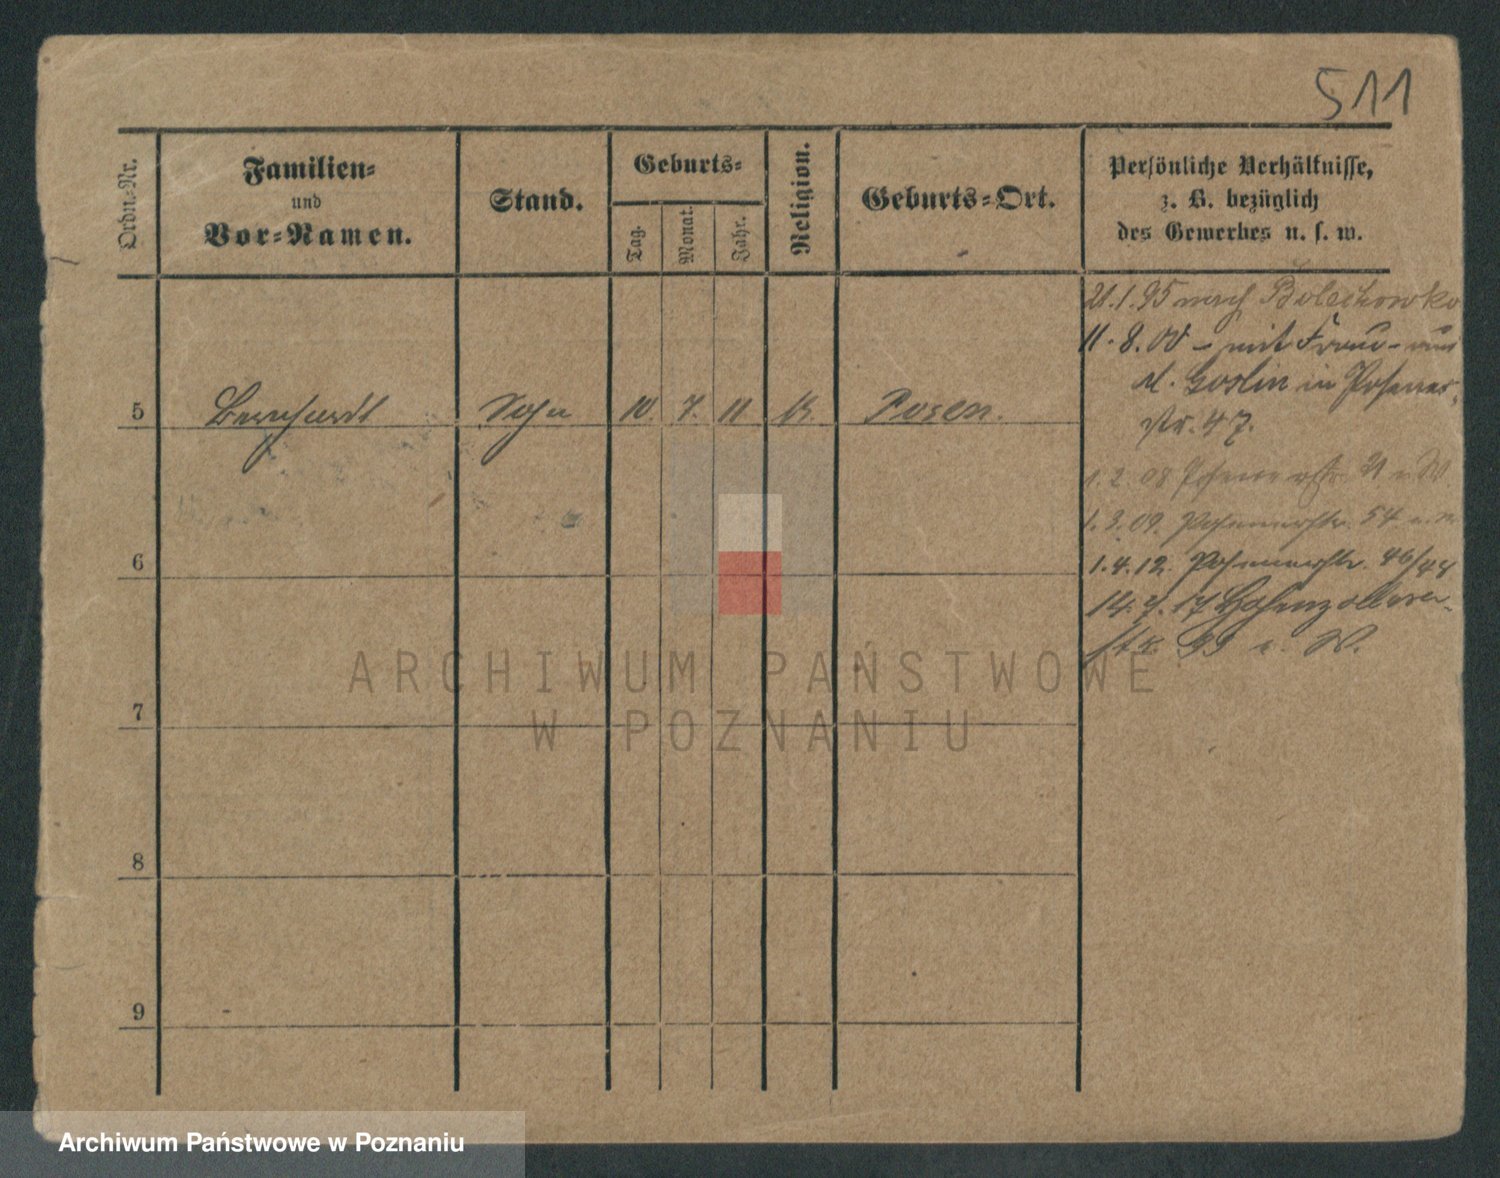 511
Ordn.-Nr.
Familien-
und
Vor-Namen.
Stand.
Geburts-
Tag.
Monat.
Jahr.
Religion.
Geburts-Ort.
Persönliche Verhältnisse,
z. B. bezüglich
des Gewerbes u. s. w.
5 Bernhardt Sohn 10. 7. 11 K. Posen.
21.1.95 nach Bolechowko
11.8.00 – mit Frau – aus
M. Goslin in Posener-
str. 47.
1. 2. 08 Posenerstr. 21
1. 3. 09. Posenerstr. 54
1. 4. 12. Posenerstr. 46/48
14. 7. 17 Hohenzollern-
str. W.
6
7
8
9
ARCHIWUM PAŃSTWOWE
W POZNANIU
Archiwum Państwowe w Poznaniu